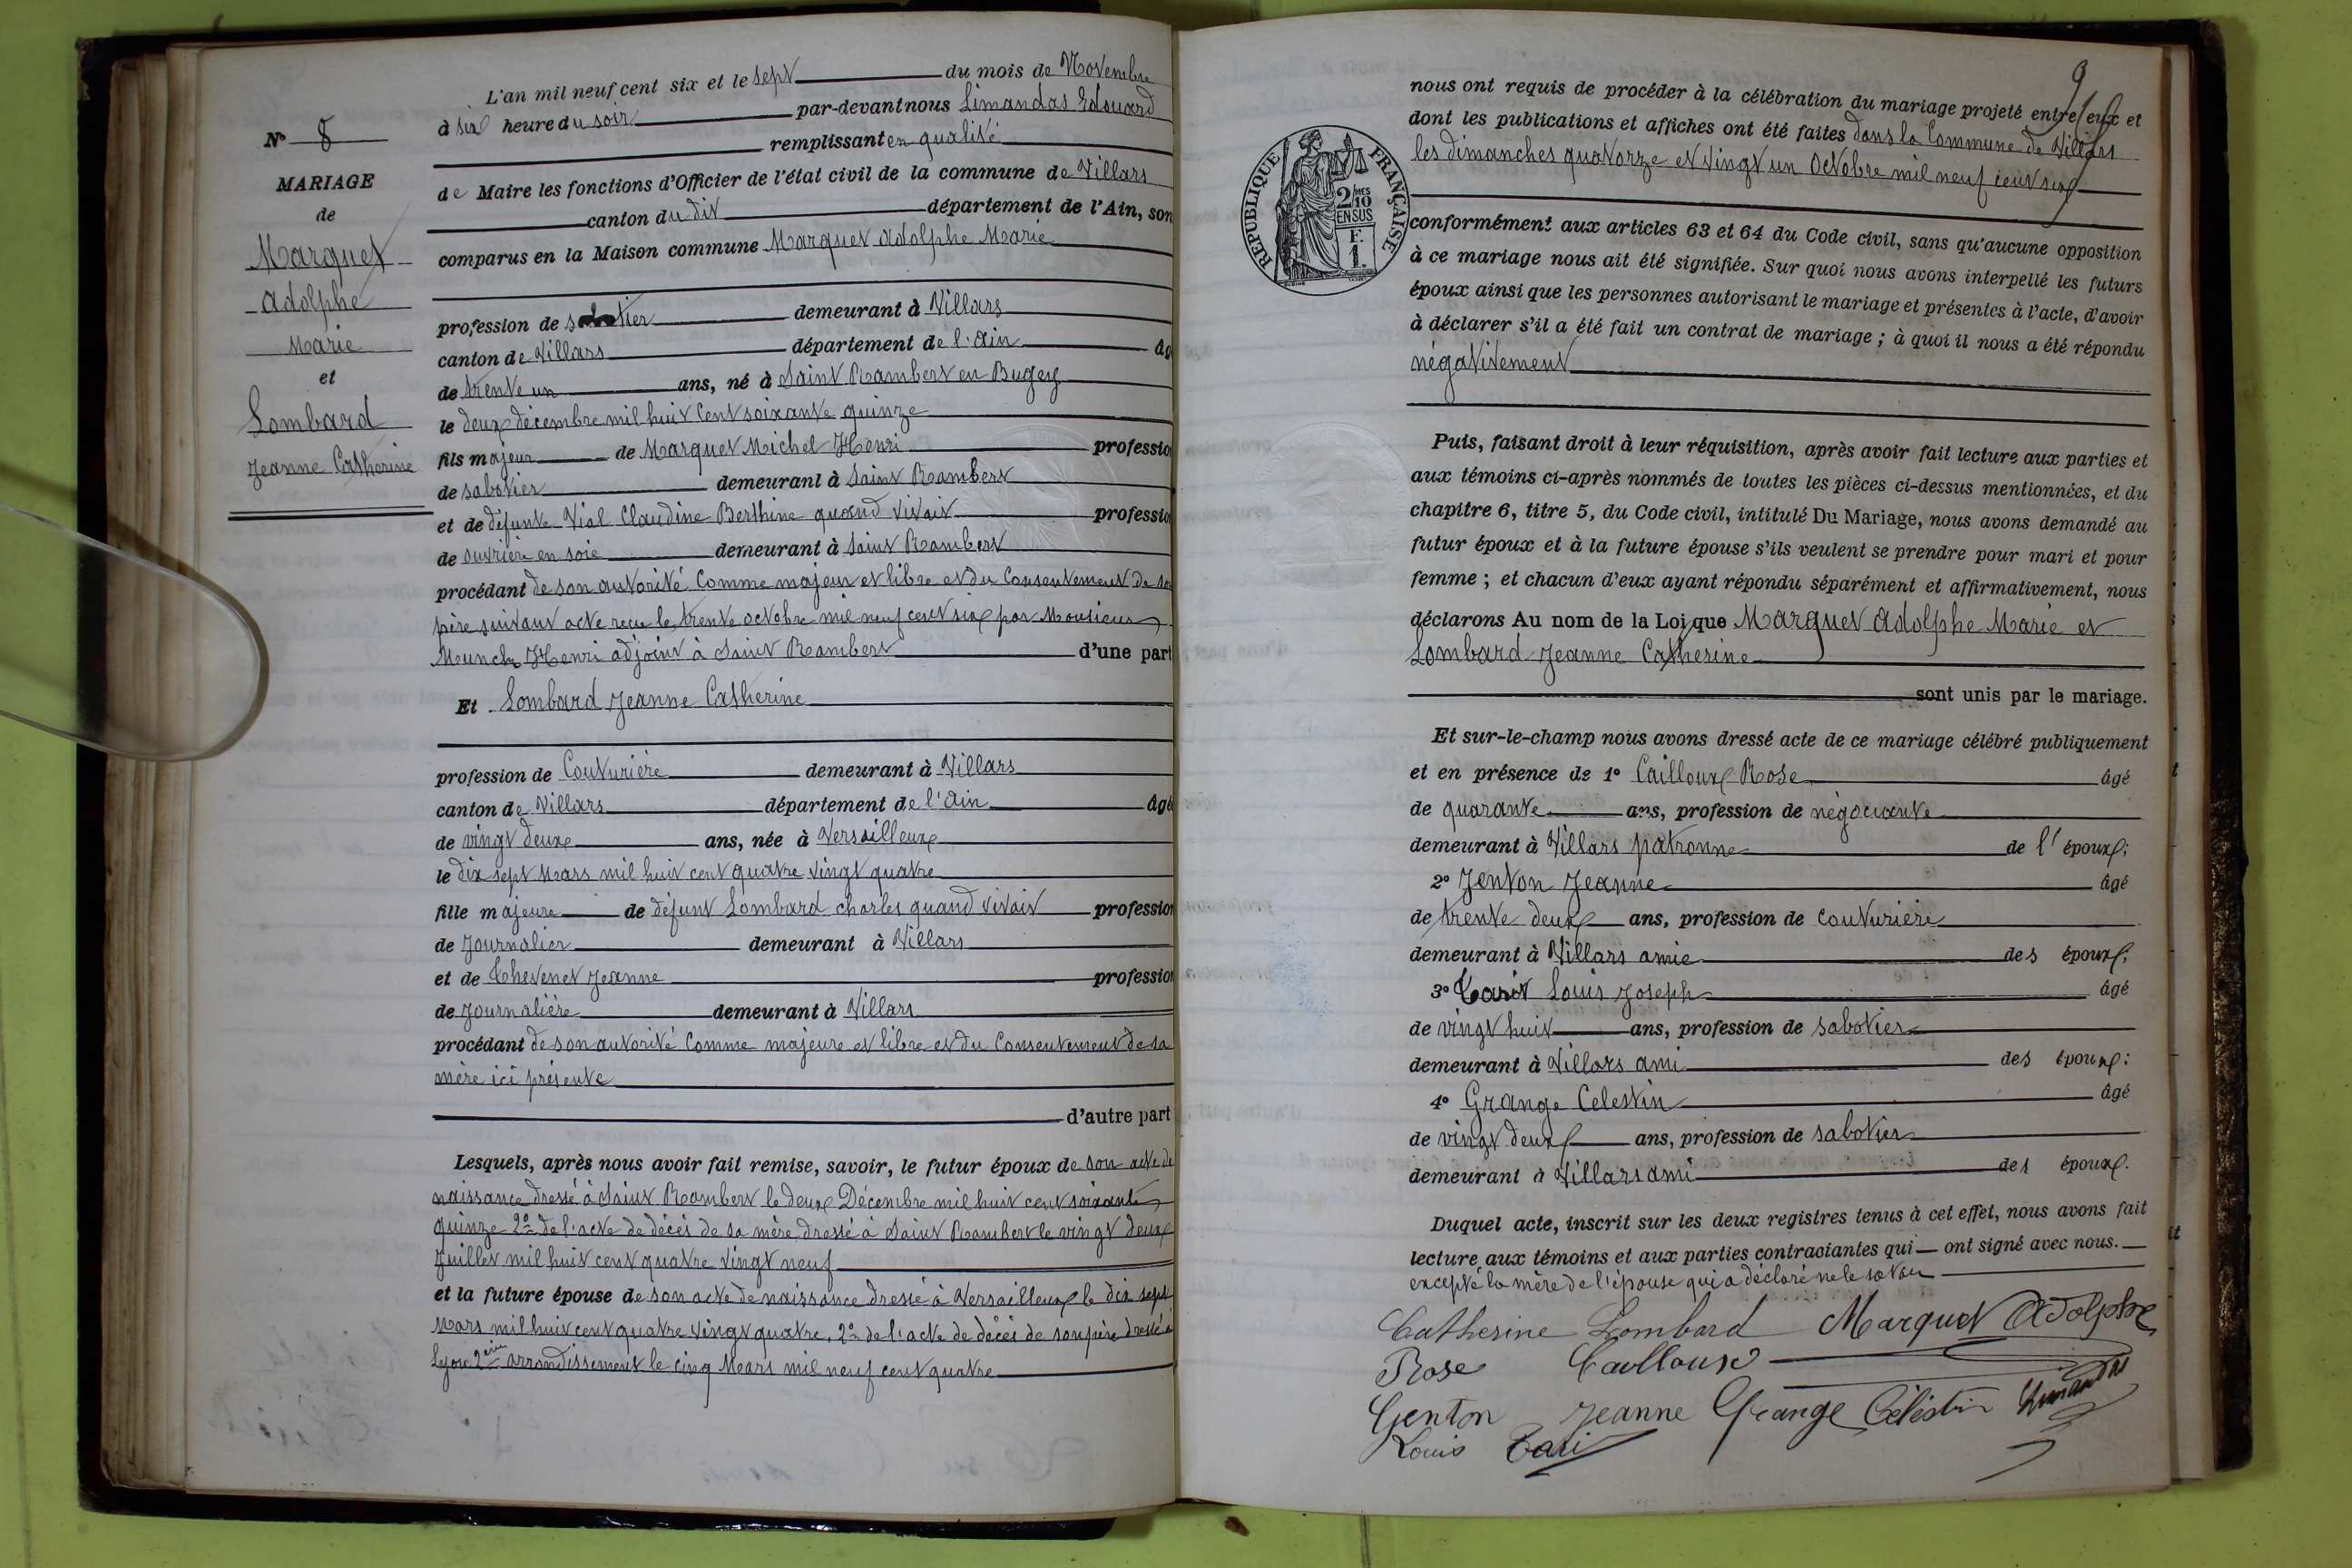 N° 8
MARIAGE
de
Marquet
Adolphe
Marie
et
Lombard
Jeanne Catherine
L'an mil neuf cent six et le sept du mois de Novembre
à six heure du soir par-devant nous Limandas Edouard
remplissant en qualité
de Maire les fonctions d'Officier de l'état civil de la commune de Villars
canton du dit département de l'Ain, son
comparus en la Maison commune Marquet Adolphe Marie
profession de sabotier demeurant à Villars
canton de Villars département de l'Ain âg
de trente un ans, né à Saint Rambert en Bugey
le deux décembre mil huit cent soixante quinze
fils majeur de Marquet Michel Henri profession
de sabotier demeurant à Saint Rambert
et de défunte Vial Claudine Berthine quand vivait profession
de ouvrière en soie demeurant à Saint Rambert
procédant de son autorité comme majeur et libre et du consentement de son
père suivant acte reçu le trente octobre mil neuf cent six par Monsieur
Munch Henri adjoint à Saint Rambert d'une part
Et Lombard Jeanne Catherine
profession de Couturière demeurant à Villars
canton de Villars département de l'Ain âgé
de vingt deux ans, née à Versailleux
le dix sept Mars mil huit cent quatre vingt quatre
fille majeure de défunt Lombard Charles quand vivait profession
de Journalier demeurant à Villars
et de Thevenet Jeanne profession
de Journalière demeurant à Villars
procédant de son autorité comme majeure et libre et du consentement de sa
mère ici présente
d'autre part
Lesquels, après nous avoir fait remise, savoir, le futur époux de son acte de
naissance dressé à Saint Rambert le deux Décembre mil huit cent soixante
quinze 2° de l'acte de décès de sa mère dressé à Saint Rambert le vingt deux
Juillet mil huit cent quatre vingt neuf
et la future épouse de son acte de naissance dressé à Versailleux le dix sept
Mars mil huit cent quatre vingt quatre, 2° de l'acte de décès de son père dressé à
Lyon 2eme arrondissement le cinq Mars mil neuf cent quatre
9
nous ont requis de procéder à la célébration du mariage projeté entre eux et
dont les publications et affiches ont été faites dans la Commune de Villars
les dimanches quatorze et vingt un Octobre mil neuf cent six
RÉPUBLIQUE FRANÇAISE
2/10MES
EN SUS
F.
1.
conformément aux articles 63 et 64 du Code civil, sans qu'aucune opposition
à ce mariage nous ait été signifiée. Sur quoi nous avons interpellé les futurs
époux ainsi que les personnes autorisant le mariage et présentes à l'acte, d'avoir
à déclarer s'il a été fait un contrat de mariage ; à quoi il nous a été répondu
négativement
Puis, faisant droit à leur réquisition, après avoir fait lecture aux parties et
aux témoins ci-après nommés de toutes les pièces ci-dessus mentionnées, et du
chapitre 6, titre 5, du Code civil, intitulé Du Mariage, nous avons demandé au
futur époux et à la future épouse s'ils veulent se prendre pour mari et pour
femme ; et chacun d'eux ayant répondu séparément et affirmativement, nous
déclarons Au nom de la Loi que Marquet Adolphe Marie et
Lombard Jeanne Catherine
sont unis par le mariage.
Et sur-le-champ nous avons dressé acte de ce mariage célébré publiquement
et en présence de 1° Cailloux Rose âgé
de quarante ans, profession de négociante
demeurant à Villars patronne de l'époux;
2° Jenton Jeanne âgé
de trente deux ans, profession de couturière
demeurant à Villars amie des époux;
3° Tarit Louis Joseph âgé
de vingt huit ans, profession de sabotier
demeurant à Villars ami des époux:
4° Grange Celestin âgé
de vingt deux ans, profession de sabotier
demeurant à Villars ami des époux.
Duquel acte, inscrit sur les deux registres tenus à cet effet, nous avons fait
lecture aux témoins et aux parties contractantes qui ont signé avec nous.
excepté la mère de l'épouse qui a déclaré ne le savoir
Catherine Lombard Marquet Adolphe
Rose Cailloux
Genton Jeanne Grange Célestin Limandas
Louis Tari